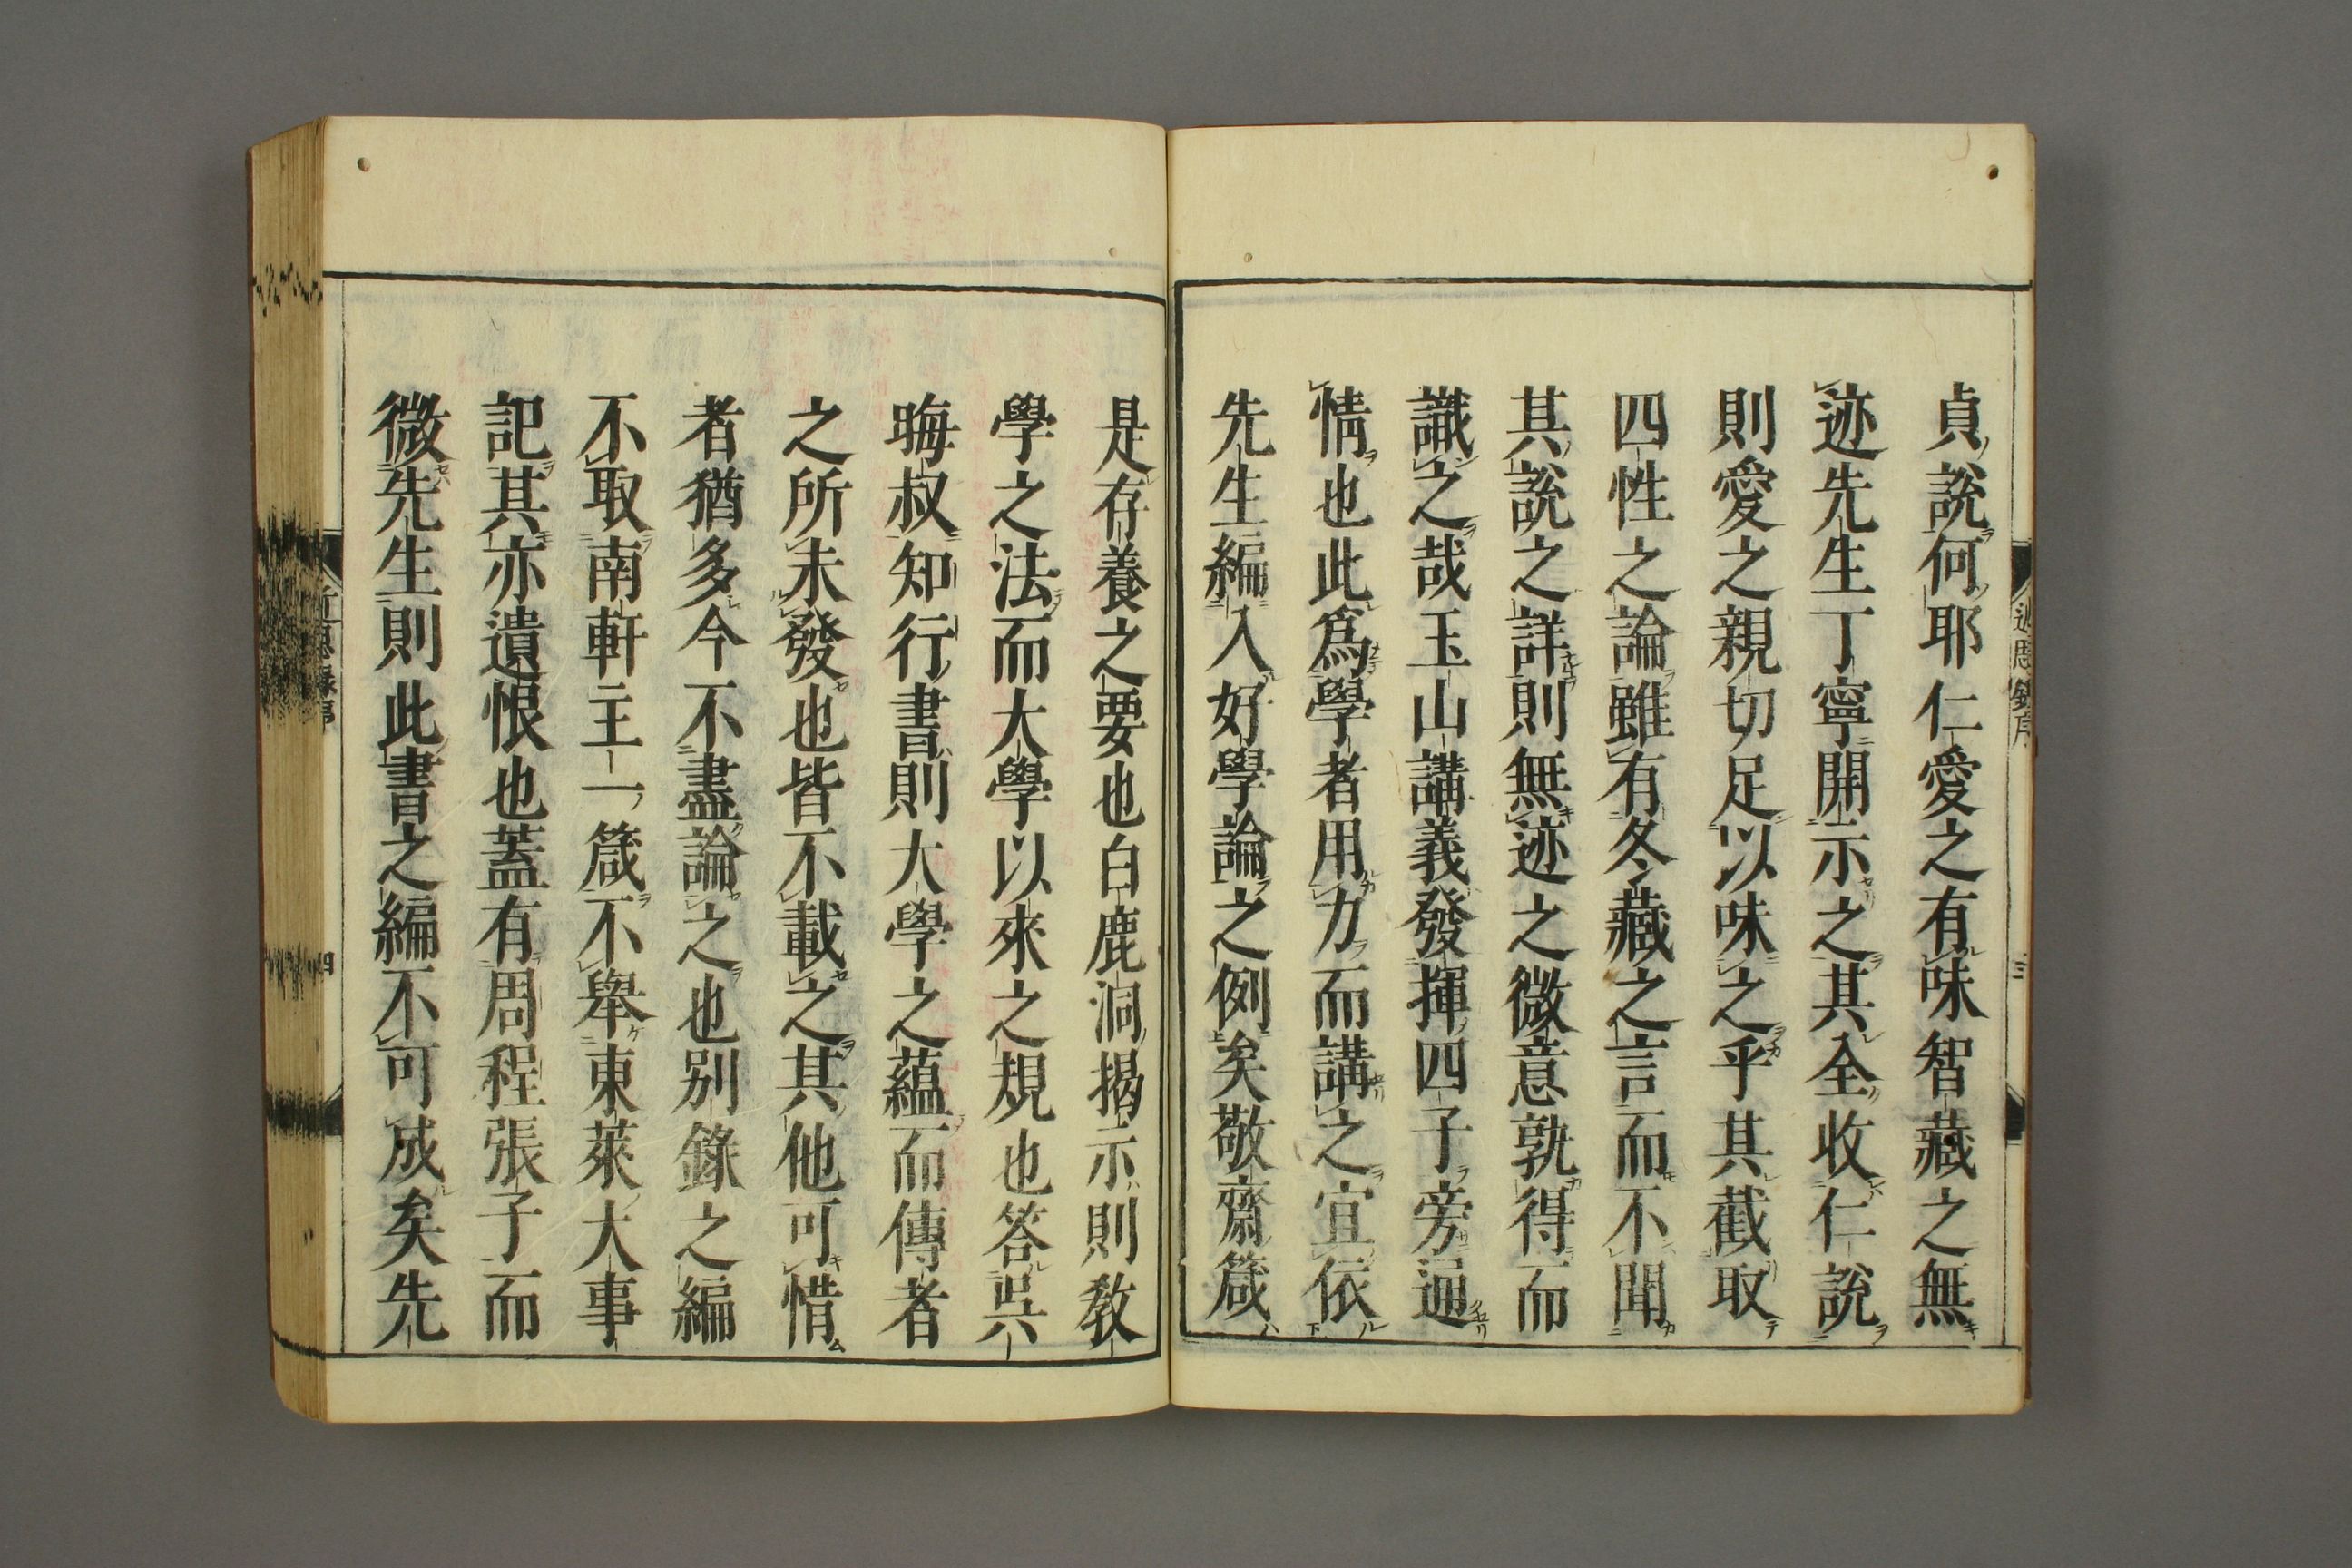 貞說何耶仁愛之有味智藏之無
迹先生丁寧開示之其全收仁說
則愛之親切足以味之乎其截取
四性之論雖有冬藏之言而不聞
其說之詳則無迹之微意孰得而
識之哉玉山講義發揮四子旁通
情也此爲學者用力而講之宜依
先生編入好學論之例矣敬齋箴
是存養之要也白鹿洞揭示則教
學之法而大學以來之規也答吳
晦叔知行書則大學之蘊而傳者
之所未發也皆不載之其他可惜
者猶多今不盡論之也別錄之編
不取南軒主一箴不舉東萊大事
記其亦遺恨也蓋有周程張子而
微先生則此書之編不可成矣先
近思錄序
三
近思錄序
四